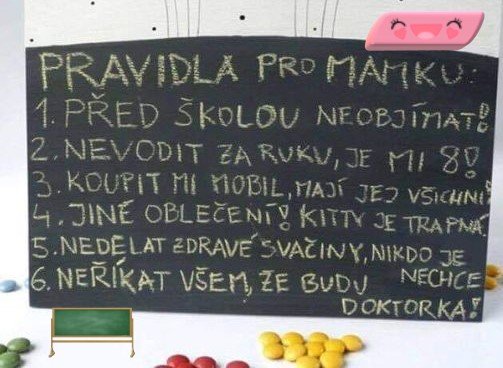 PRAVIDLA PRO MAMKU:
1. PŘED ŠKOLOU NEOBJÍMAT!
2. NEVODIT ZA RUKU, JE MI 8!
3. KOUPIT MI MOBIL, MAJÍ JEJ VŠICHNI!
4. JINÉ OBLEČENÍ! KITTY JE TRAPNÁ
5. NEDĚLAT ZDRAVÉ SVAČINY, NIKDO JE NECHCE
6. NEŘÍKAT VŠEM, ŽE BUDU DOKTORKA!